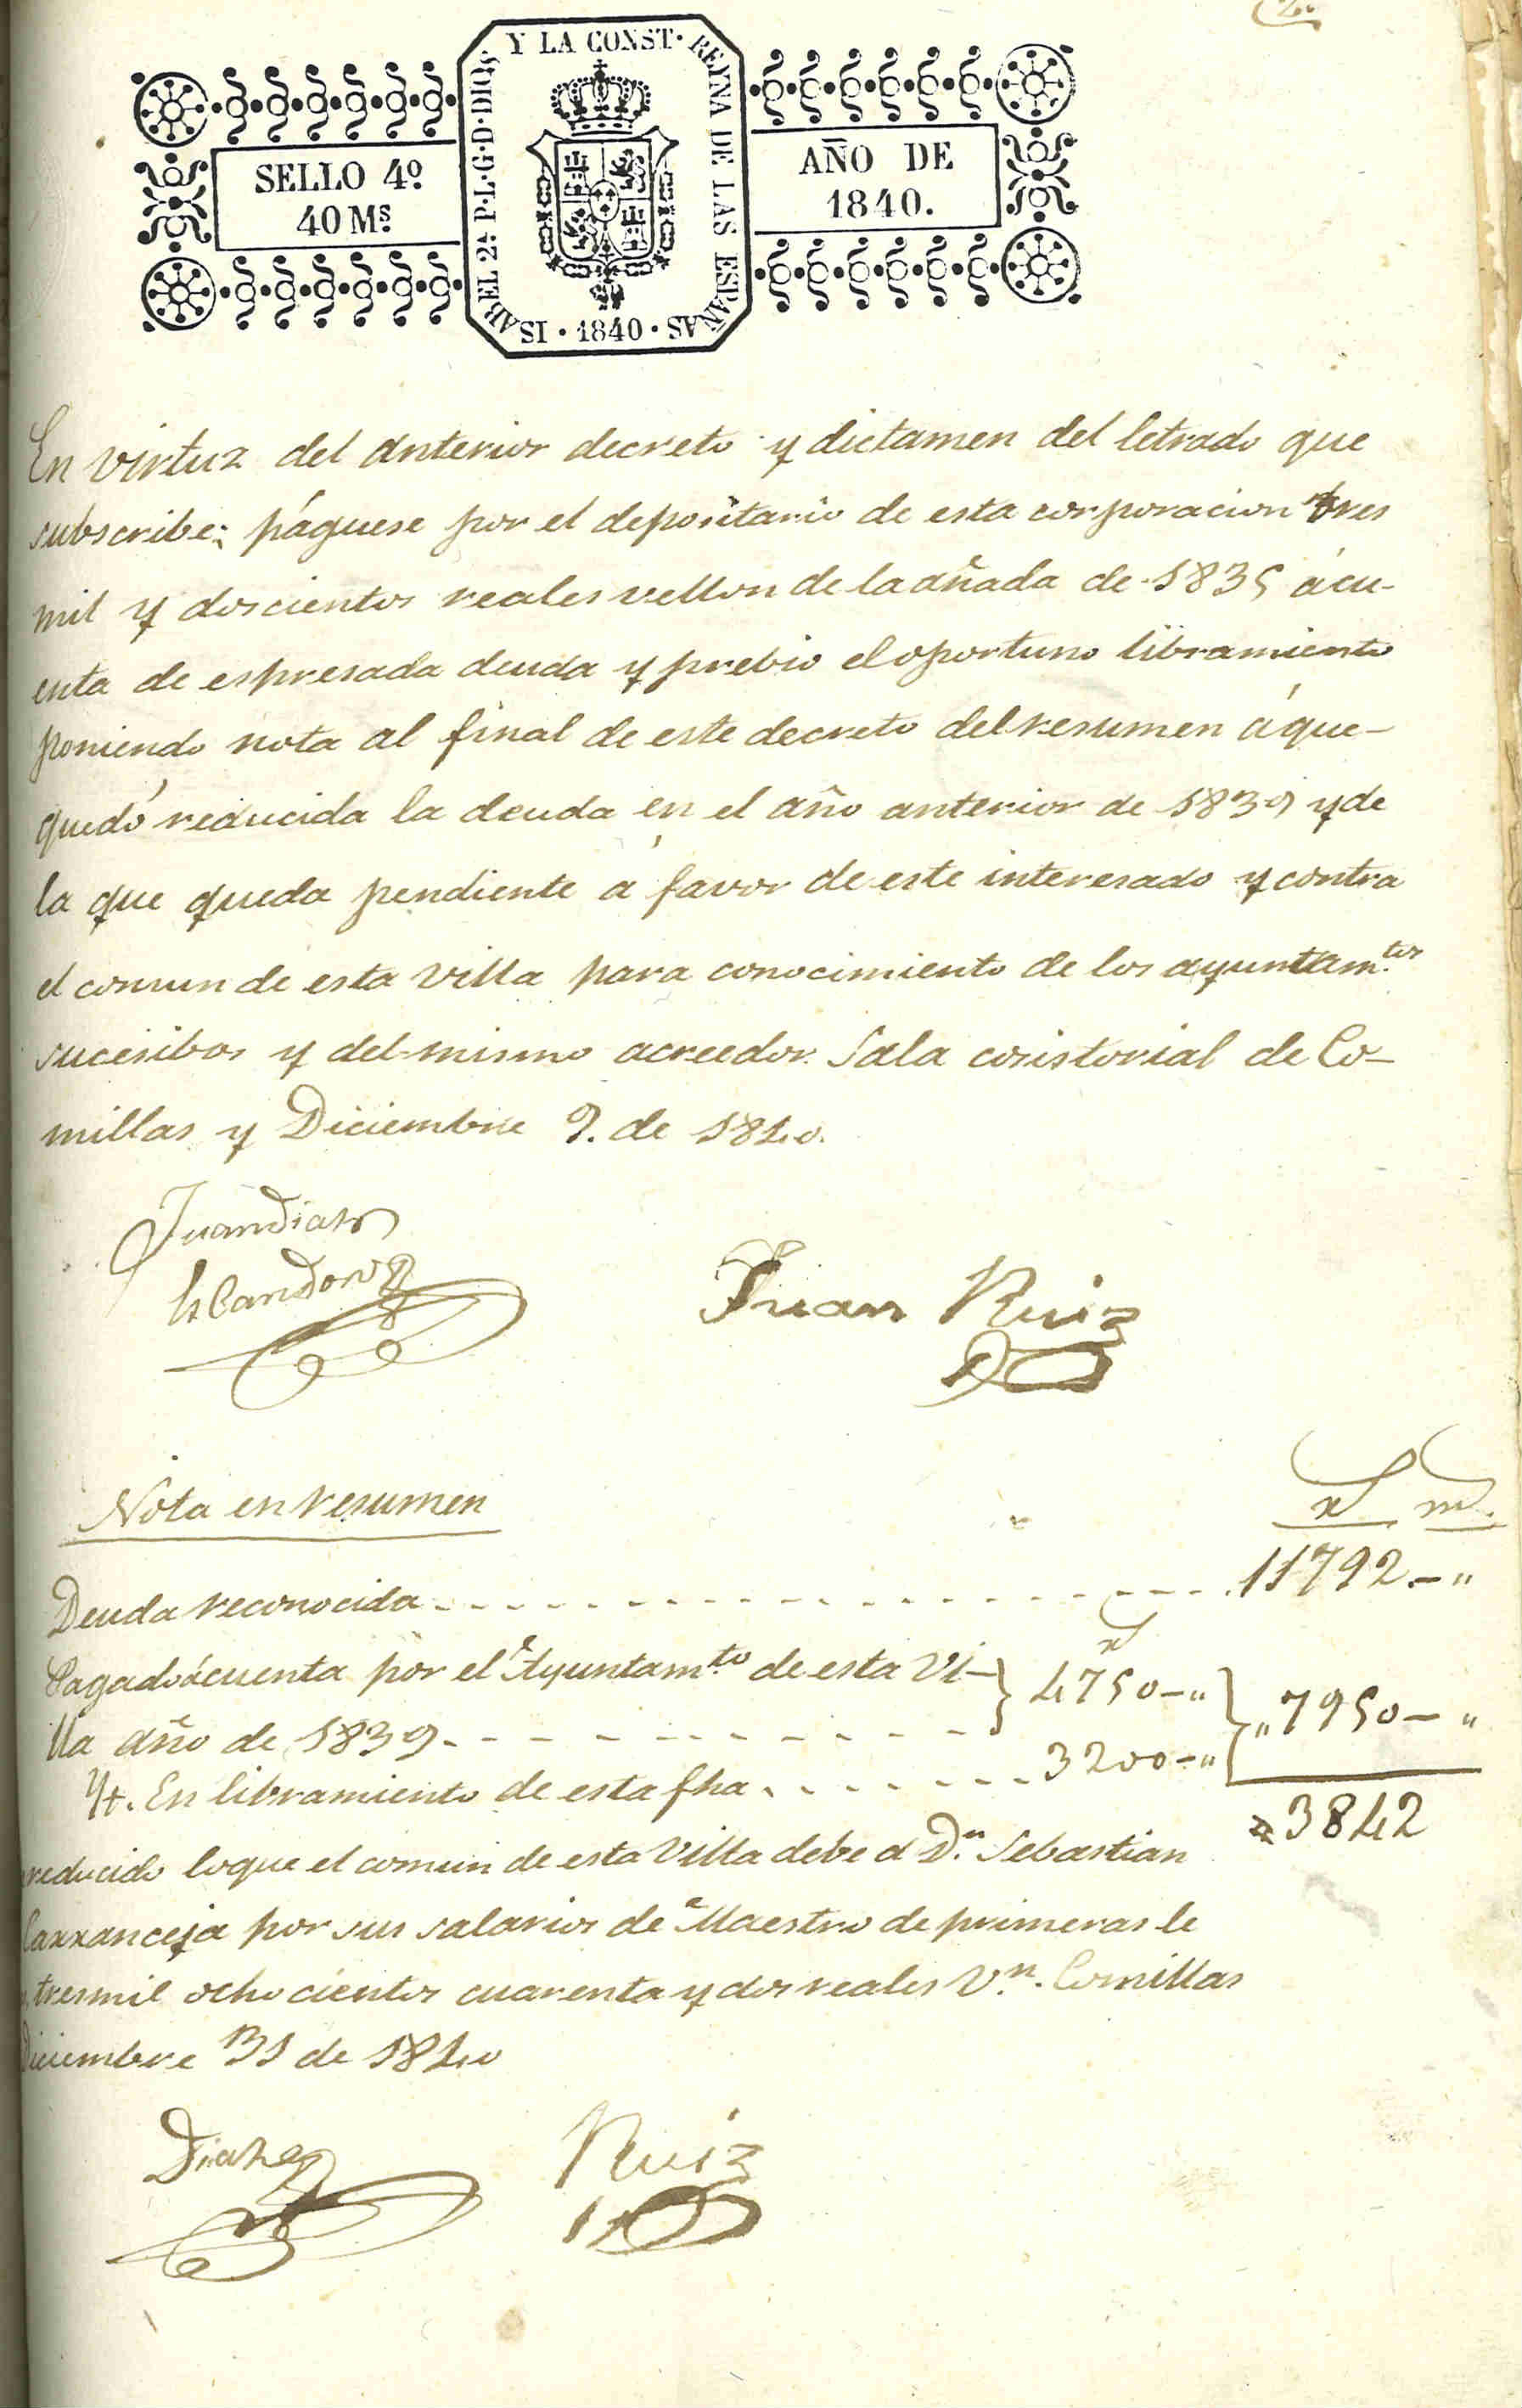 SELLO 4º
40 Mˢ
ISABEL 2ª P.L.G.D.DIOS Y LA CONST. REYNA DE LAS ESPAÑAS
· 1840 ·
AÑO DE
1840.
En virtuz del anterior decreto y dictamen del letrado que
subscribe; páguese por el depositario de esta corporacion tres
mil y doscientos reales vellon de la añada de 1835 á cu-
enta de espresada deuda y prebio el oportuno libramiento
poniendo nota al final de este decreto del resumen á que-
quedó reducida la deuda en el año anterior de 1839 y de
la que queda pendiente á favor de este interesado y contra
el comun de esta villa para conocimiento de los ayuntam.tos
sucesibos y del mismo acreedor. Sala cosistorial de Co-
millas y Diciembre 9. de 1840.
Juan Diaz
Escandon
Juan Ruiz
Nota en resumen
r m.
Deuda reconocida 11792 - "
Pagado á cuenta por el Ayuntam.to de esta Vi- } 4750 - "
lla año de 1839 } " 7950 - "
Yt. En libramiento de esta fha 3200 - "
3842
reducido loque el comun de esta Villa debe a D.n Sebastian
Carranceja por sus salarios de Maestro de primeras le
tres mil ochocientos cuarenta y dos reales V.n. Comillas
Diciembre 31 de 1840
Diaz
Ruiz